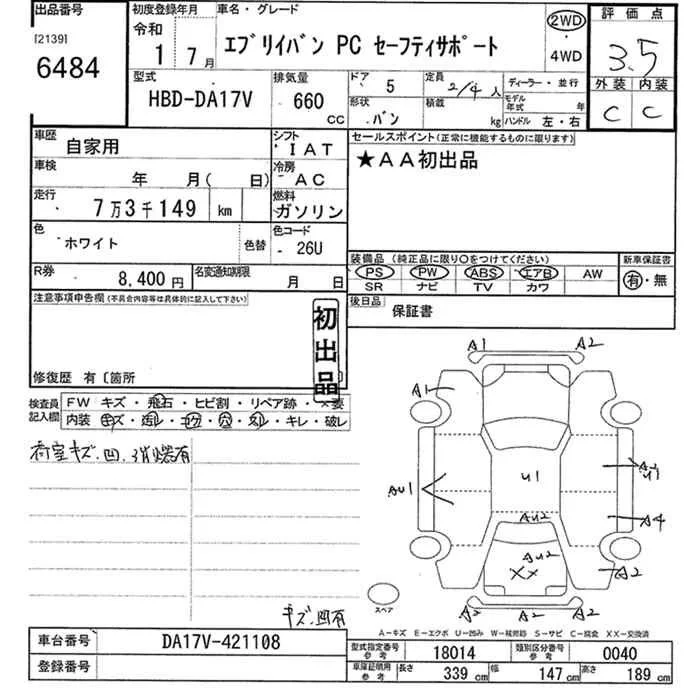 出品番号
[2139]
6484
初度登録年月
令和
1 7月
車名・グレード
エブリイバン PC セーフティサポート
2WD
・
4WD
評価点
3.5
外装 内装
C C
型式
HBD-DA17V
排気量
660
CC
ドア 5
定員 2/4人
形状 バン
積載 kg
ディーラー・並行
モデル年式 年
ハンドル 左・右
車歴
自家用
シフト
IAT
車検
年 月( 日)
冷房
AC
走行
7万3千149 km
燃料
ガソリン
色
ホワイト
色替
色コード
26U
R券
8,400円
名変通知期限
月 日
セールスポイント(正常に機能するものに限ります)
★AA初出品
装備品(純正品に限り○をつけてください)
PS PW ABS エアB AW
SR ナビ TV カワ
新車保証書
有・無
後日品
保証書
注意事項申告欄(不具合内容等は具体的に記入して下さい)
初出品
修復歴 有〔箇所 〕
検査員記入欄
FW キズ・飛石・ヒビ割・リペア跡・×要
内装 キズ・汚レ・コゲ・穴・スレ・キレ・破レ
荷室キズ、凹、消火器有
キズ、凹有
A1 A2
A1
U1
AU1
AU1
A4
AU2
AU2
XX
A2
A2 A2 A2
スペア
A-キズ E-エクボ U-凹み W-補修跡 S-サビ C-腐食 XX-交換済
車台番号
DA17V-421108
登録番号
型式指定番号
参考
18014
類別区分番号
参考
0040
車庫証明用
参考
長さ 339cm
幅 147cm
高さ 189cm